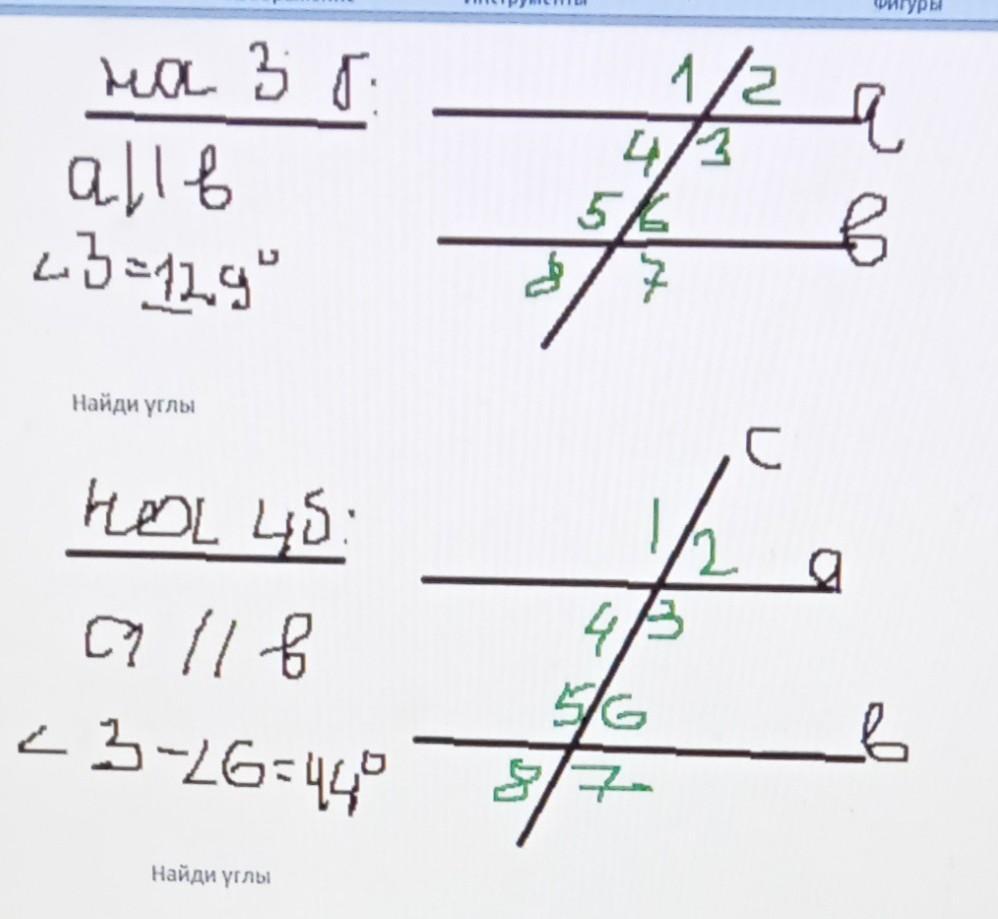 Инструменты
Фигуры
на 3 б:
a||в
<3=129°
1 2 а
4 3
5 6 в
8 7
Найди углы
с
на 4б:
1 2 а
а // в
4 3
<3-<6=44°
5 6 в
8 7
Найди углы